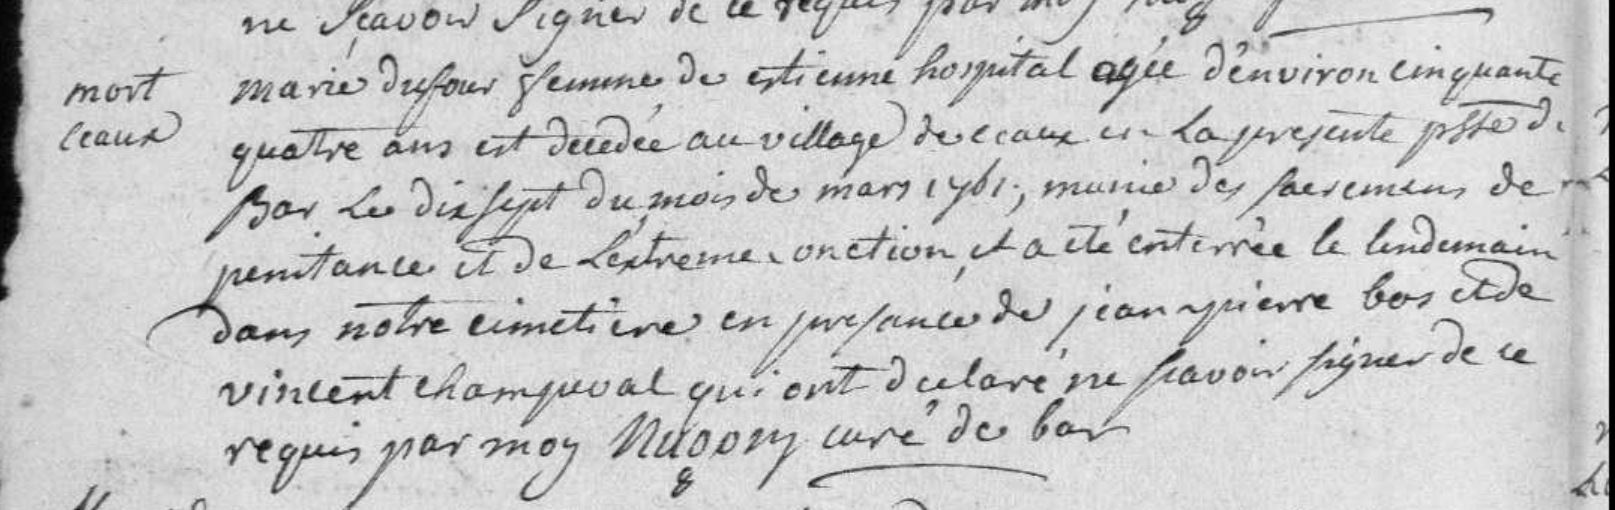 ne scavoir signer de ce requis par moy
mort
ceaux
marie dufour femme de estienne hospital agée d'environ cinquante
quatre ans est decedée au village de ceaux en la presente psse de
Bar le dix sept du mois de mars 1761, munie des sacremens de
penitance et de l'extreme onction et a eté enterrée le lendemain
dans notre cimetiere en presance de jean pierre bos et de
vincent champeval qui ont declaré ne scavoir signer de ce
requis par moy curé de bar